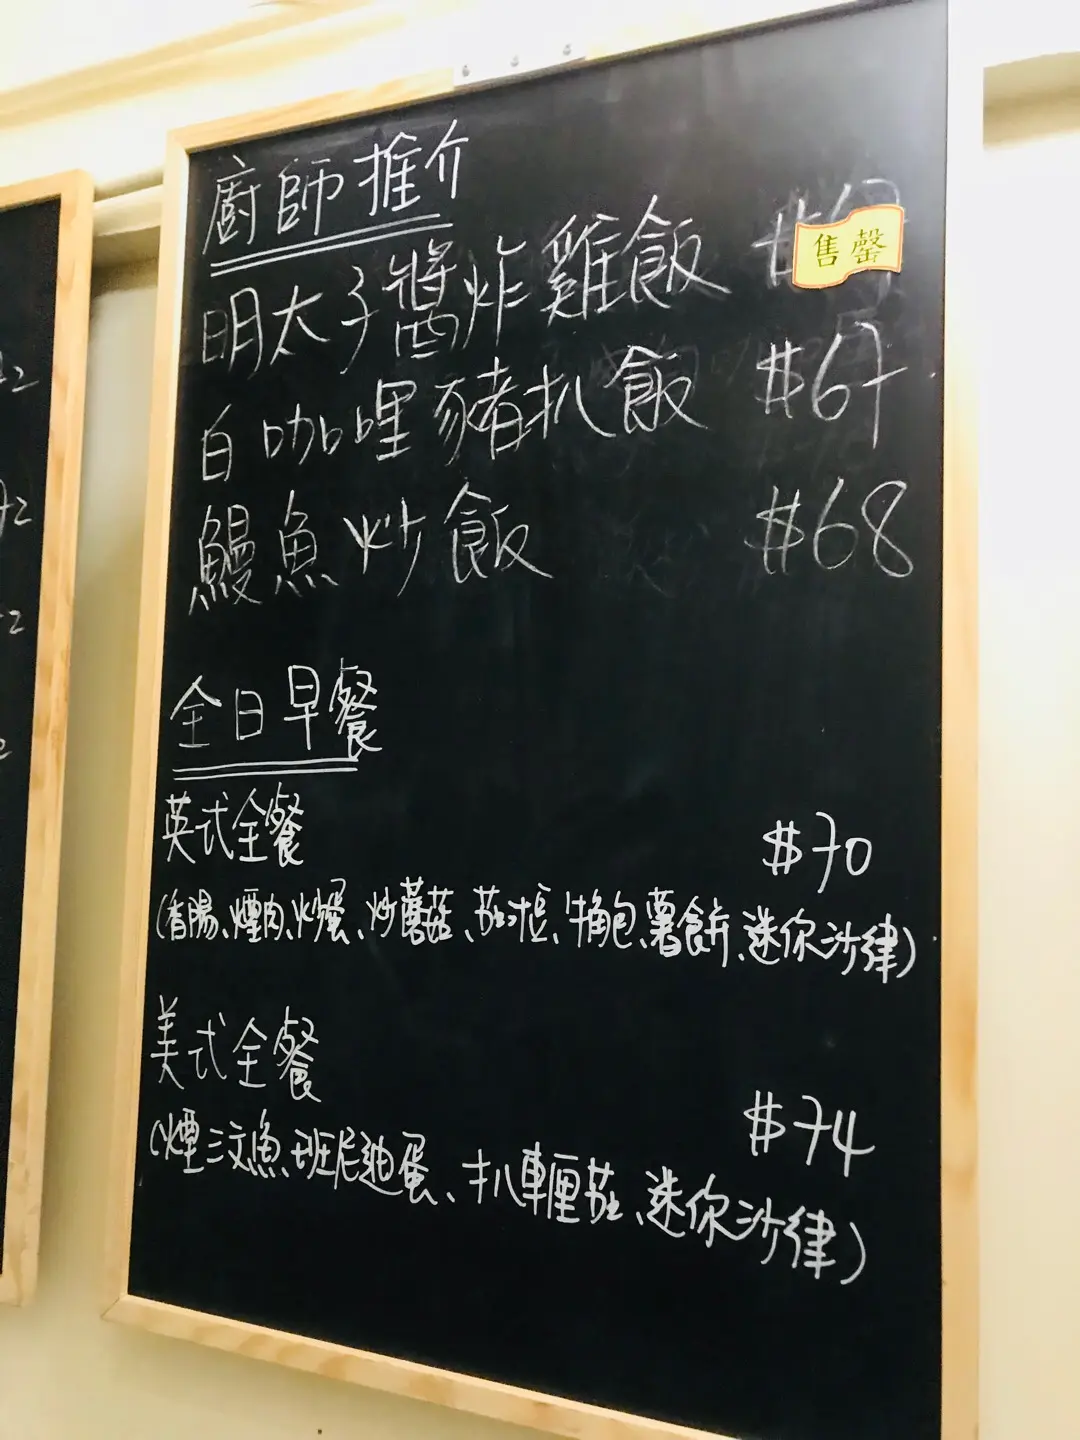 廚師推介
明太子醬炸雞飯 售罄
白咖哩豬扒飯 $67
鰻魚炒飯 $68
全日早餐
英式全餐 $70
(香腸、煙肉、炒蛋、炒蘑菇、茄汁豆、牛角包、薯餅、迷你沙律)
美式全餐 $74
(煙三文魚、班尼迪蛋、扒車厘茄、迷你沙律)